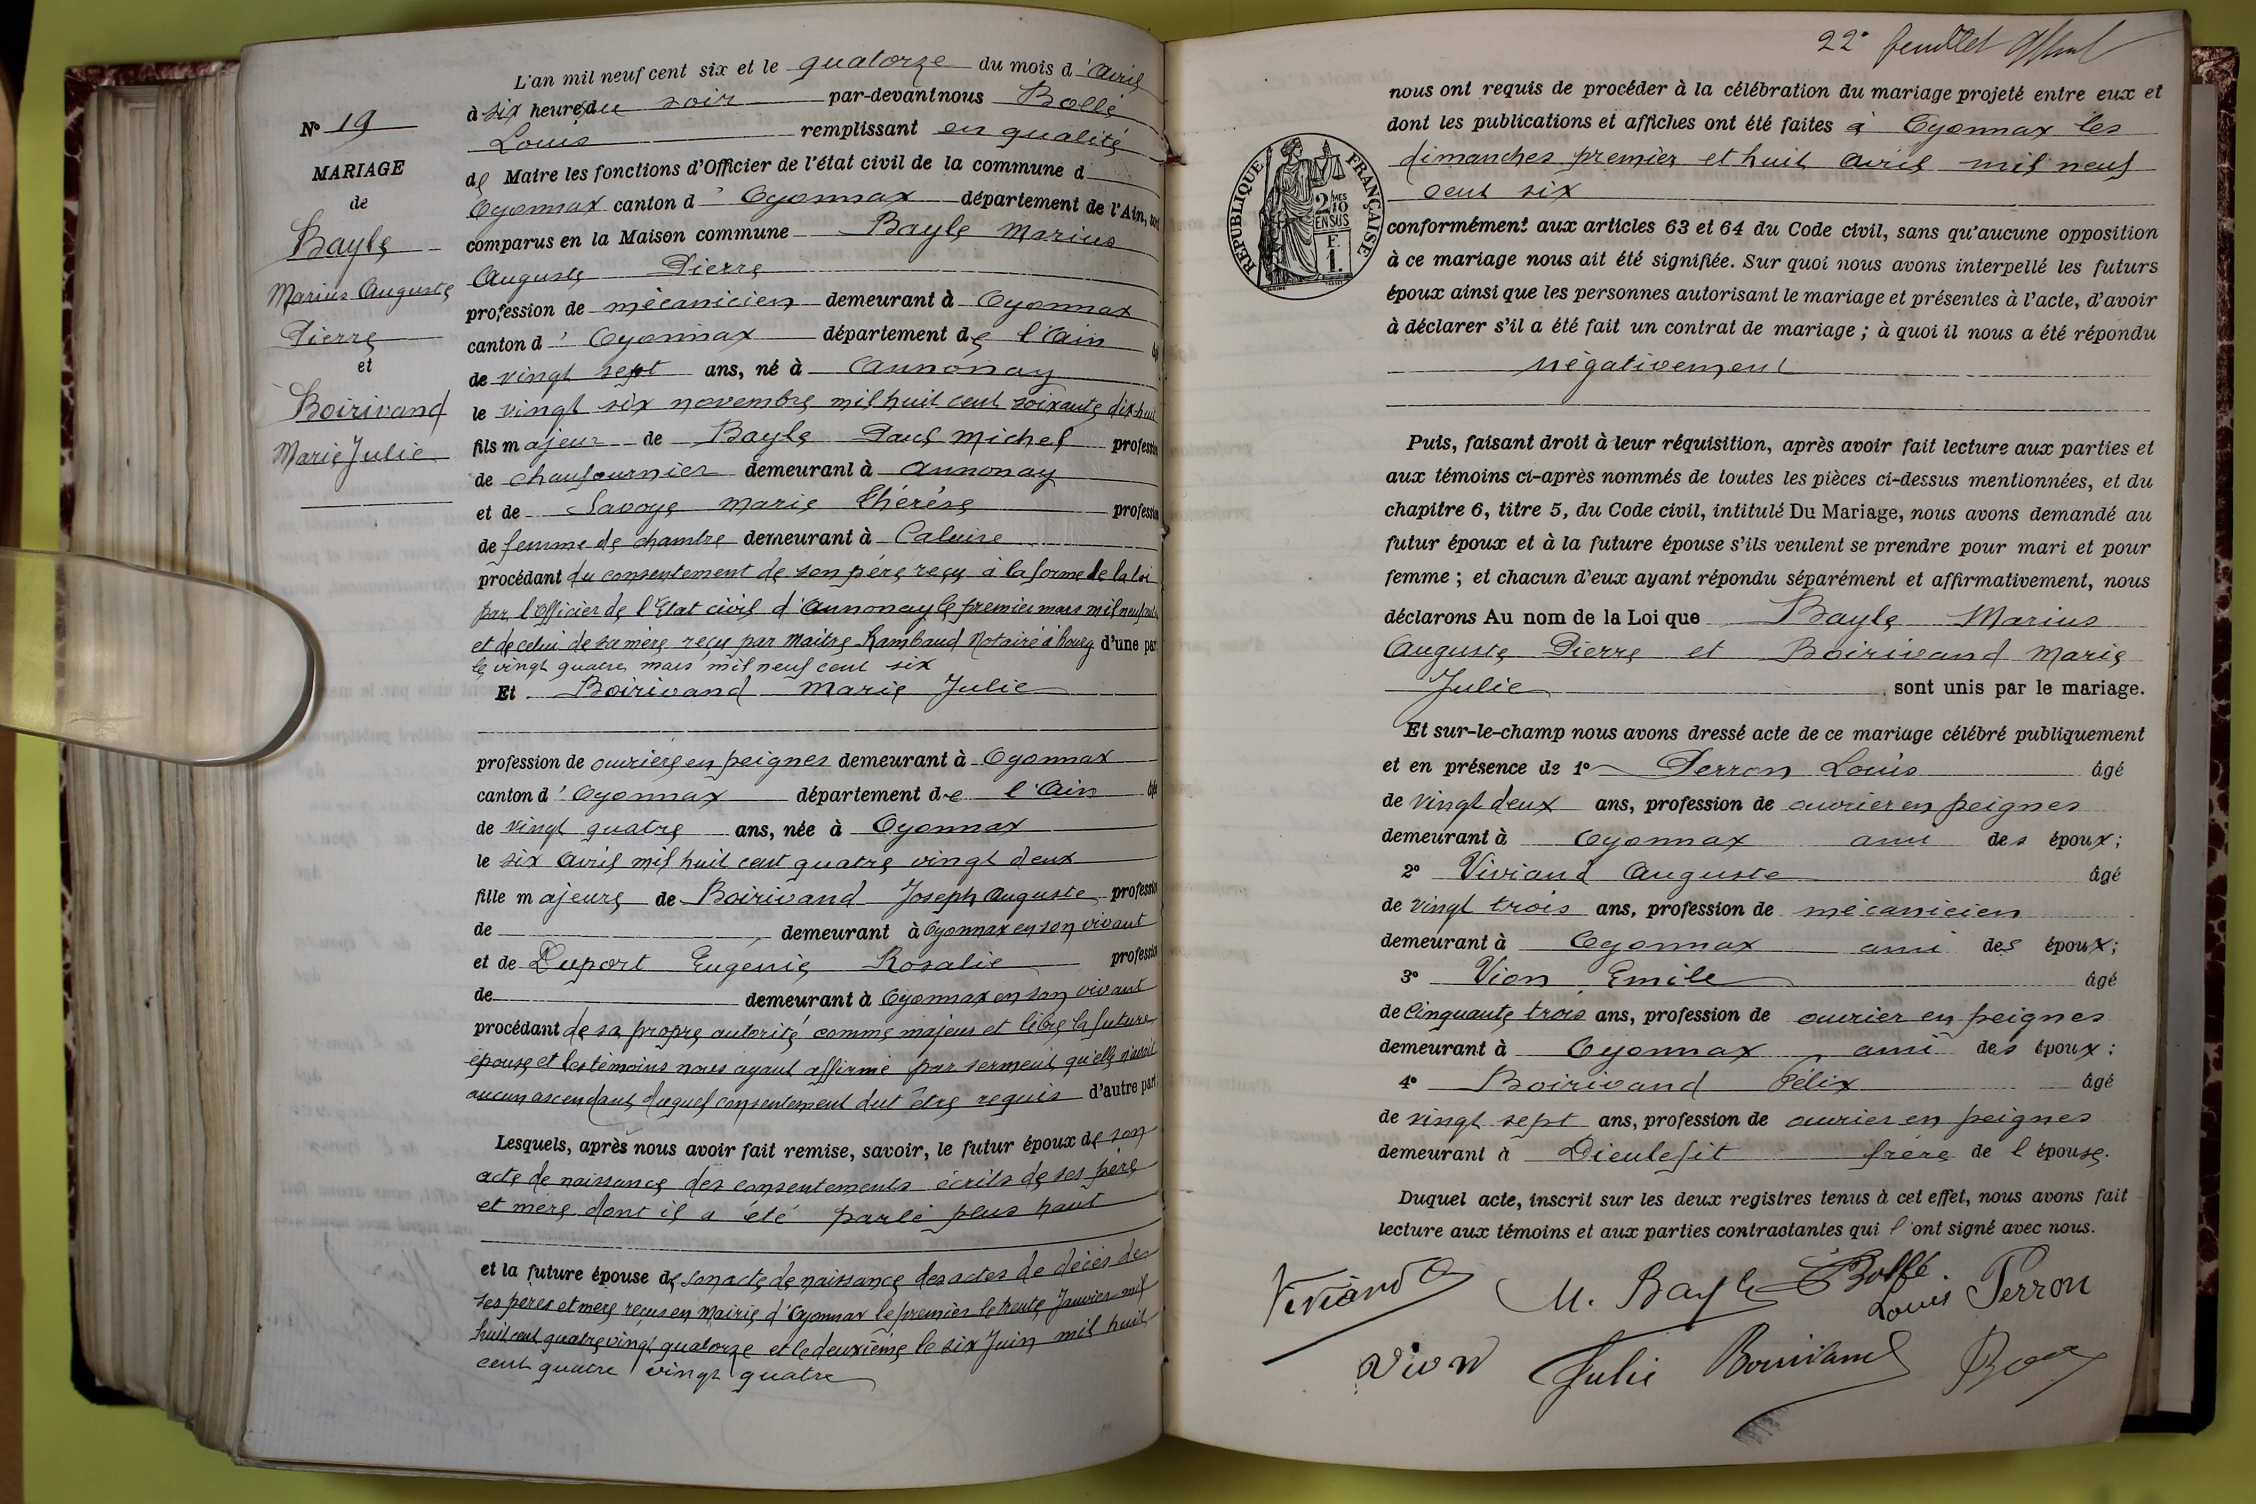 N° 19
MARIAGE
de
Bayle
Marius Auguste
Pierre
et
Boirivand
Marie Julie
L'an mil neuf cent six et le quatorze du mois d'Avril
à six heures du soir par-devant nous Bollé
Louis remplissant en qualité
de Maire les fonctions d'Officier de l'état civil de la commune d
Oyonnax canton d'Oyonnax département de l'Ain, sont
comparus en la Maison commune Bayle Marius
Auguste Pierre
profession de mécanicien demeurant à Oyonnax
canton d'Oyonnax département de l'Ain
de vingt sept ans, né à Annonay
le vingt six novembre mil huit cent soixante dix-huit
fils majeur de Bayle Paul Michel profession
de chaufournier demeurant à Annonay
et de Savoye Marie Thérèse profession
de femme de chambre demeurant à Caluire
procédant du consentement de son père reçu à la forme de la loi
par l'Officier de l'Etat civil d'Annonay le premier mars mil neuf cent
et de celui de sa mère reçu par Maître Rambaud Notaire à Bourg d'une part
le vingt quatre mars mil neuf cent six
Et Boirivand Marie Julie
profession de ouvrière en peignes demeurant à Oyonnax
canton d'Oyonnax département de l'Ain
de vingt quatre ans, née à Oyonnax
le six Avril mil huit cent quatre vingt deux
fille majeure de Boirivand Joseph Auguste profession
de demeurant à Oyonnax en son vivant
et de Duport Eugénie Rosalie profession
de demeurant à Oyonnax en son vivant
procédant de sa propre autorité comme majeur et libre la future
épouse et les témoins nous ayant affirmé par serment qu'elle n'avait
aucun ascendant duquel consentement dut être requis d'autre part
Lesquels, après nous avoir fait remise, savoir, le futur époux de son
acte de naissance des consentements écrits de ses père
et mère dont il a été parlé plus haut
et la future épouse de son acte de naissance des actes de décès de
ses pères et mère reçus en Mairie d'Oyonnax le premier le trente Janvier mil
huit cent quatre vingt quatorze et le deuxième le six Juin mil huit
cent quatre vingt quatre
22e feuillet
nous ont requis de procéder à la célébration du mariage projeté entre eux et
dont les publications et affiches ont été faites à Oyonnax les
dimanches premier et huit avril mil neuf
cent six
RÉPUBLIQUE FRANÇAISE
2/10 MES
EN SUS
F.
1.
conformément aux articles 63 et 64 du Code civil, sans qu'aucune opposition
à ce mariage nous ait été signifiée. Sur quoi nous avons interpellé les futurs
époux ainsi que les personnes autorisant le mariage et présentes à l'acte, d'avoir
à déclarer s'il a été fait un contrat de mariage ; à quoi il nous a été répondu
négativement
Puis, faisant droit à leur réquisition, après avoir fait lecture aux parties et
aux témoins ci-après nommés de toutes les pièces ci-dessus mentionnées, et du
chapitre 6, titre 5, du Code civil, intitulé Du Mariage, nous avons demandé au
futur époux et à la future épouse s'ils veulent se prendre pour mari et pour
femme ; et chacun d'eux ayant répondu séparément et affirmativement, nous
déclarons Au nom de la Loi que Bayle Marius
Auguste Pierre et Boirivand Marie
Julie, sont unis par le mariage.
Et sur-le-champ nous avons dressé acte de ce mariage célébré publiquement
et en présence de 1° Perron Louis âgé
de vingt deux ans, profession de ouvrier en peignes
demeurant à Oyonnax ami des époux ;
2° Viviand Auguste âgé
de vingt trois ans, profession de mécanicien
demeurant à Oyonnax ami des époux ;
3° Vion Emile âgé
de Cinquante trois ans, profession de ouvrier en peignes
demeurant à Oyonnax, ami des époux ;
4° Boirivand Félix âgé
de vingt sept ans, profession de ouvrier en peignes
demeurant à Dieulefit frère de l'épouse.
Duquel acte, inscrit sur les deux registres tenus à cet effet, nous avons fait
lecture aux témoins et aux parties contractantes qui l'ont signé avec nous.
Viviand A M. Bayle Bollé Louis Perron
Vion Julie Boirivand